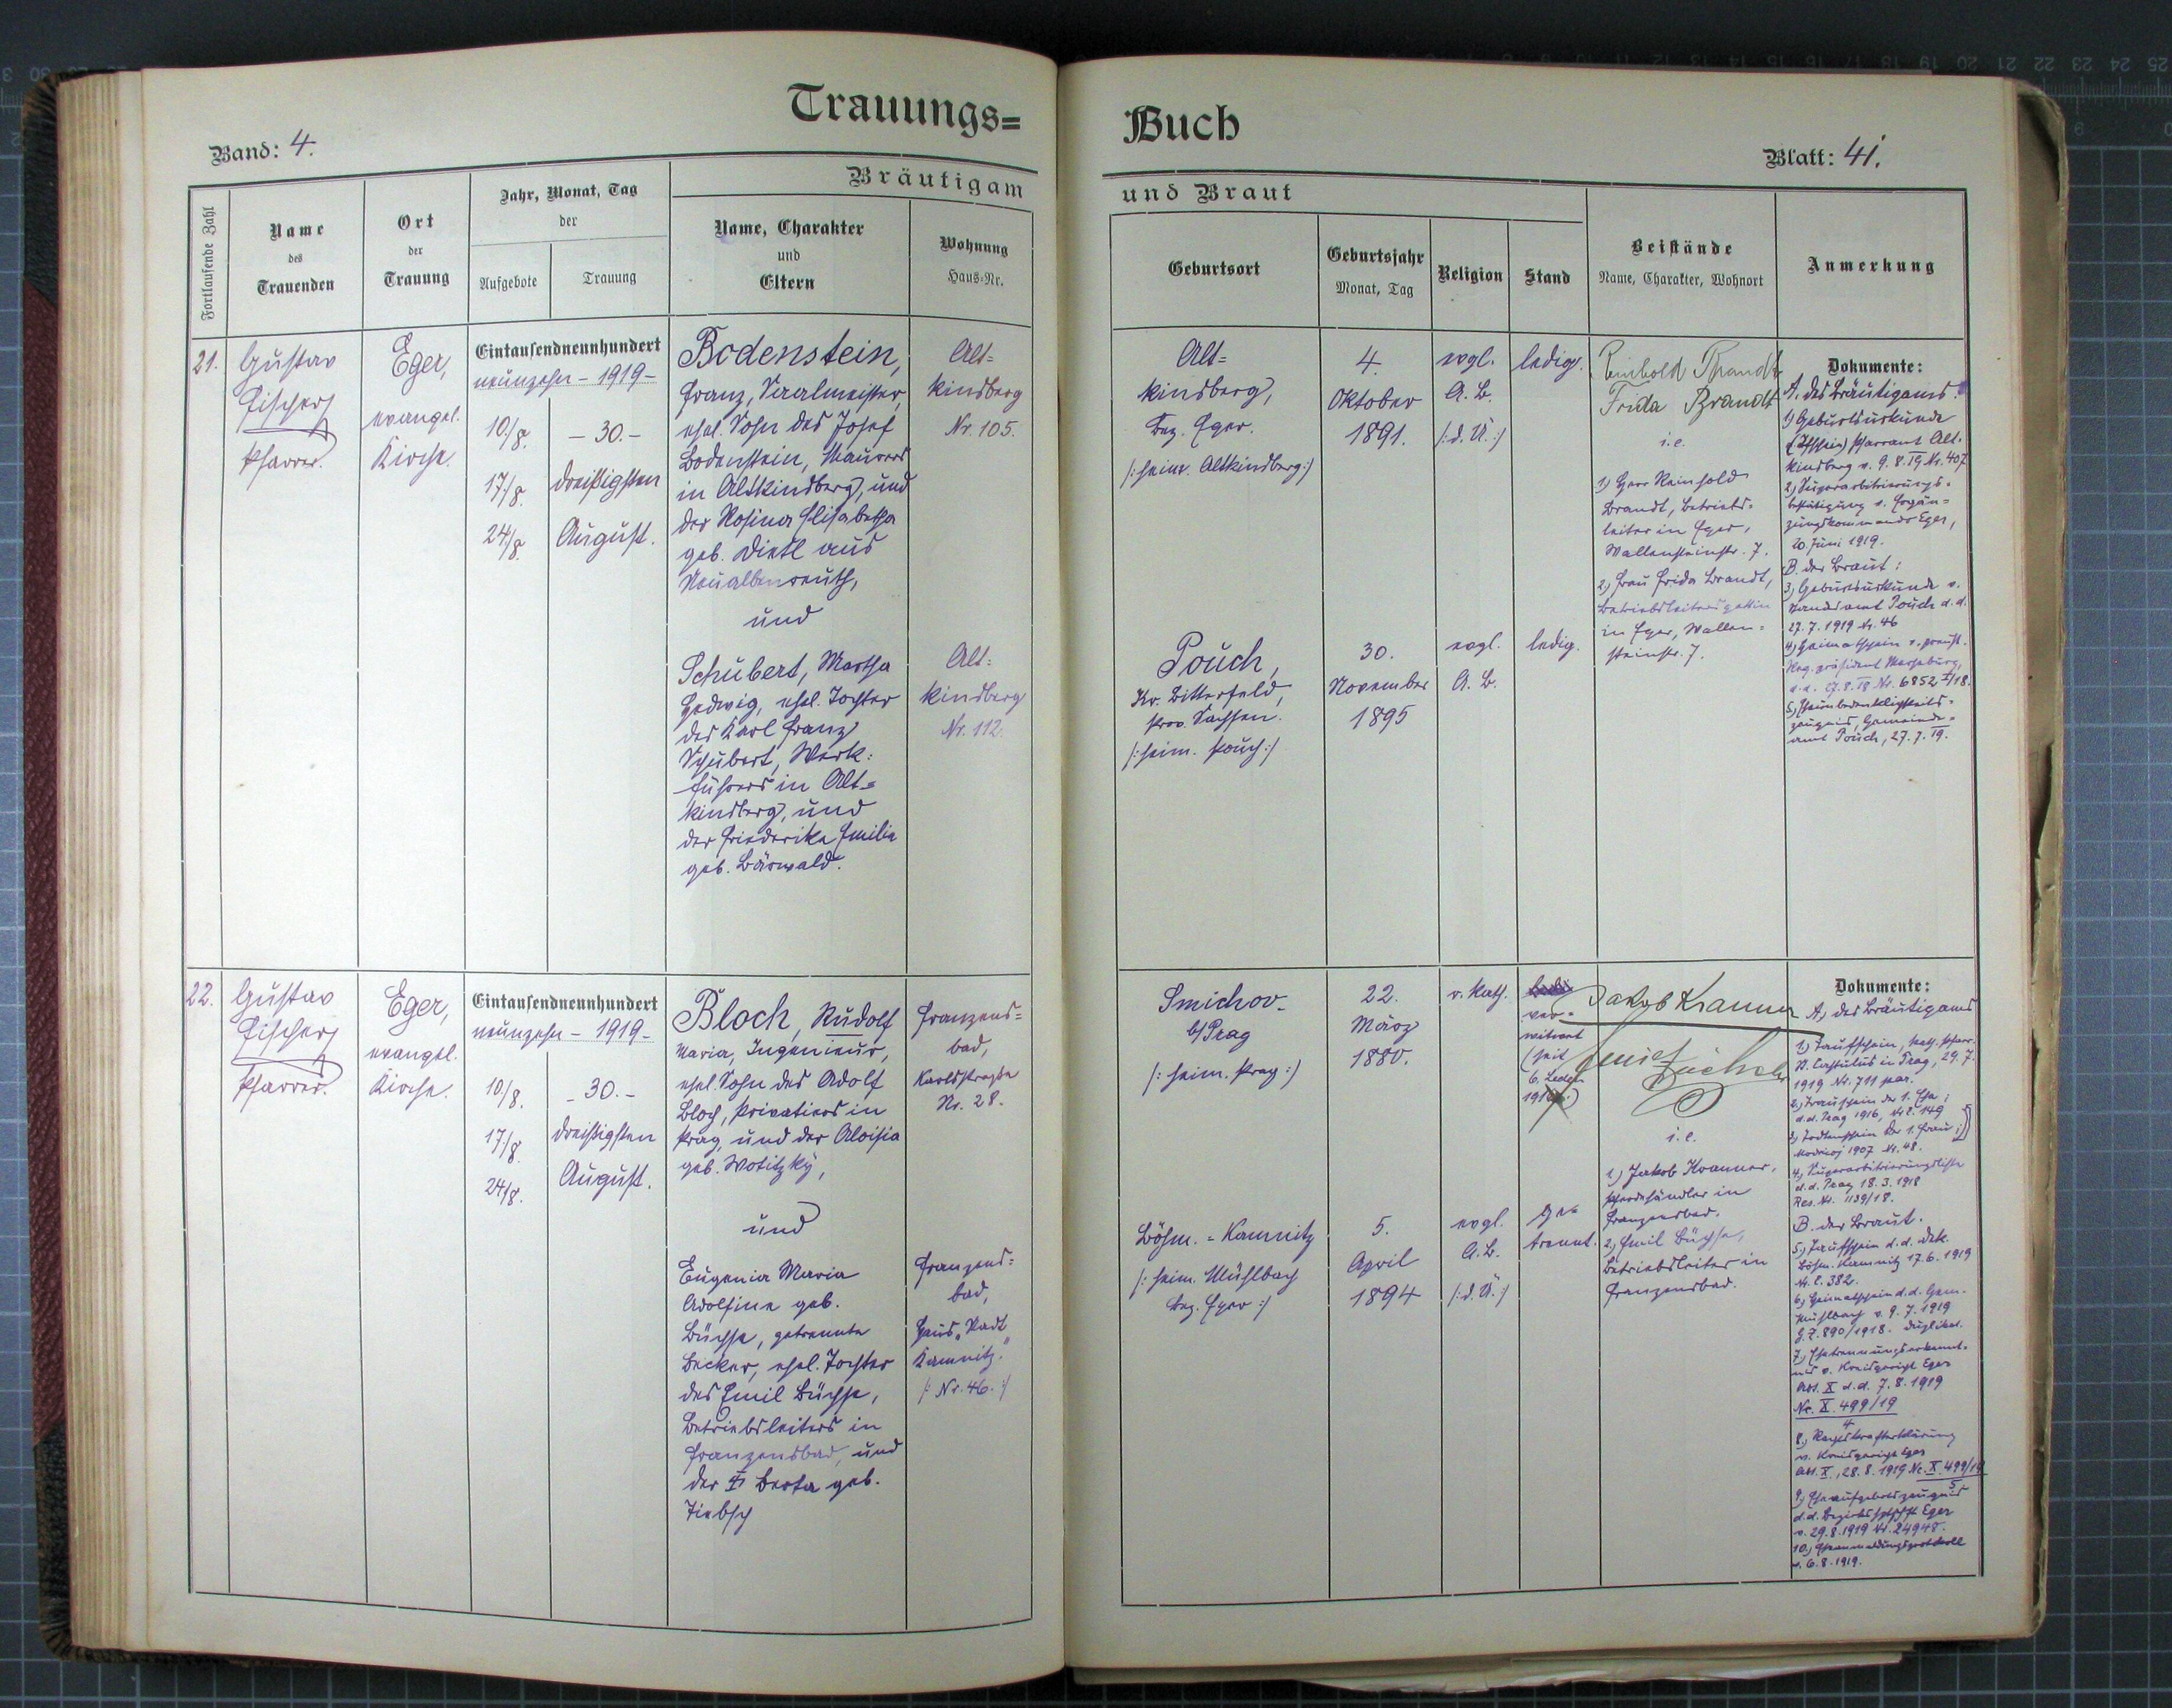 Trauungs=
Buch
Band: 4.
Blatt: 41.
Bräutigam
und Braut
Fortlaufende Zahl
Name
des
Trauenden
Ort
der
Trauung
Jahr, Monat, Tag
der
Aufgebote
Trauung
Name, Charakter
und
Eltern
Wohnung
Haus-Nr.
Geburtsort
Geburtsjahr
Monat, Tag
Religion
Stand
Beistände
Name, Charakter, Wohnort
Anmerkung
21.
Gustav
Fischer
Pfarrer.
Eger,
evangel.
Kirche.
Eintausendneunhundert
neunzehn - 1919 -
10/8.
17/8.
24/8.
- 30. -
dreißigsten
August.
Bodenstein,
Franz,
ehel. Sohn des Josef
Bodenstein, Maurers
in Altkindberg, und
der Rosina Elisabetha
geb. Dietl aus
Neualbenreuth,
und
Schubert, Martha
Hedwig, ehel. Tochter
des Karl Franz
Schubert, Werk=
führers in Alt=
kindberg, und
der Friederika Emilie
geb. Bärwald.
Alt=
kindberg
Nr. 105.
Alt=
kindberg
Nr. 112.
Alt=
kindberg,
Bez. Eger.
/: heim. Altkindberg :/
Pouch,
Kr. Bitterfeld,
Prov. Sachsen.
/: heim. Pouch :/
4.
Oktober
1891.
30.
November
1895
evgl.
A. B.
/: d. Ü. :/
evgl.
A. B.
ledig.
ledig.
Reinhold Brandt
Frida Brandt
i. e.
1) Herr Reinhold
Brandt, Betriebs=
leiter in Eger,
Wallensteinstr. 7.
2) Frau Frida Brandt,
Betriebsleitersgattin
in Eger, Wallen=
steinstr. 7.
Dokumente:
A. des Bräutigams:
1) Geburtsurkunde
Pfarramt Alt-
kindberg v. 9. 8. 19 Nr. 407
2) Superarbitrierungs-
bestätigung v. Ergän=
zungskommando Eger,
20. Juni 1919.
B. der Braut:
3) Geburtsurkunde v.
Standesamt Pouch d. d.
27. 7. 1919 Nr. 46
4) Heimatschein v. preuß.
Reg. präsident Merseburg,
Nr. 6852 I/18.
5)
zeugnis, Gemeinde=
amt Pouch, 27. 7. 19.
22.
Gustav
Fischer
Pfarrer.
Eger,
evangel.
Kirche.
Eintausendneunhundert
neunzehn - 1919 -
10/8.
17/8.
24/8.
- 30. -
dreißigsten
August.
Bloch, Rudolf
Maria, Ingenieur,
ehel. Sohn des Adolf
Bloch, Privatiers in
Prag, und der Aloisia
geb. Wotitzky,
und
Eugenia Maria
Adolfine geb.
Büchse, getrennte
Becker, ehel. Tochter
des Emil Büchse,
Betriebsleiters in
Franzensbad, und
der Berta geb.
Tiebsch
Franzens=
bad,
Karlstrasse
Nr. 28.
Franzens=
bad,
Haus „Stadt
Kamnitz."
/: Nr. 46. :/
Smichov
b/Prag
/: heim. Prag :/
Böhm. = Kamnitz
/: heim. Mühlbach
Bez. Eger :/
22.
März
1880.
5.
April
1894
r. kath.
evgl.
A. B.
/: d. Ü. :/
ver=
witwet
(seit
ge=
trennt.
Jakob Kranner
i. e.
1.) Jakob Kranner,
Pferdehändler in
Franzensbad.
2.) Emil Büchse,
Betriebsleiter in
Franzensbad.
Dokumente:
A, des Bräutigams
1.) Taufschein, kath. Pfarr.
in Prag, 29. 7.
1919 Nr. 711 par.
2.) Trauschein der 1. Ehe;
d. d. Prag 1916, Nr. E. 149
3.) Todtenschein der 1. Frau;
1907 Nr. 48.
4.) Superarbitrierungsliste
d. d. Prag 18. 3. 1918
Res. Nr. 1139/18.
B. der Braut.
5.) Taufschein d. d.
Böhm. Kamnitz 17. 6. 1919
Nr. E. 382.
6.) Heimatschein d. d. Gem.
Mühlbach v. 9. 7. 1919
G. Z. 890/1918. Duplikat.
7.) Ehetrennungserkennt-
nis v. Kreisgericht Eger
Abt. X d. d. 7. 8. 1919
Nc. X. 499/19
4
8.) Rechtskrafterklärung
v. Kreisgericht Eger
Abt. X, 28. 8. 1919 Nc. X. 499/19
5
9.) Eheaufgebotszeugnis
d. d. Eger
v. 29. 8. 1919 Nr. 24948.
10.)
v. 6. 8. 1919.